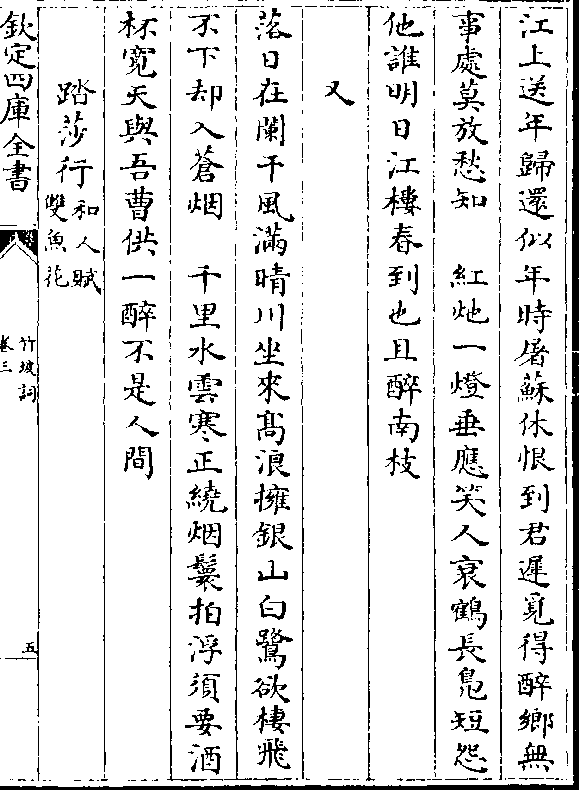 江上送年歸還似年時屠蘇休恨到君遲覓得醉鄉無
事處莫放愁知　紅灺一燈垂應笑人衰鶴長鳧短怨
他誰明日江樓春到也且醉南枝
又
落日在闌干風滿晴川坐來髙浪擁銀山白鷺欲棲飛
不下却入蒼烟　千里水雲寒正繞烟鬟拍浮須要酒
杯寛天與吾曹供一醉不是人間
踏莎行和人賦
雙魚花
欽定四庫全書
竹坡詞
卷三
五